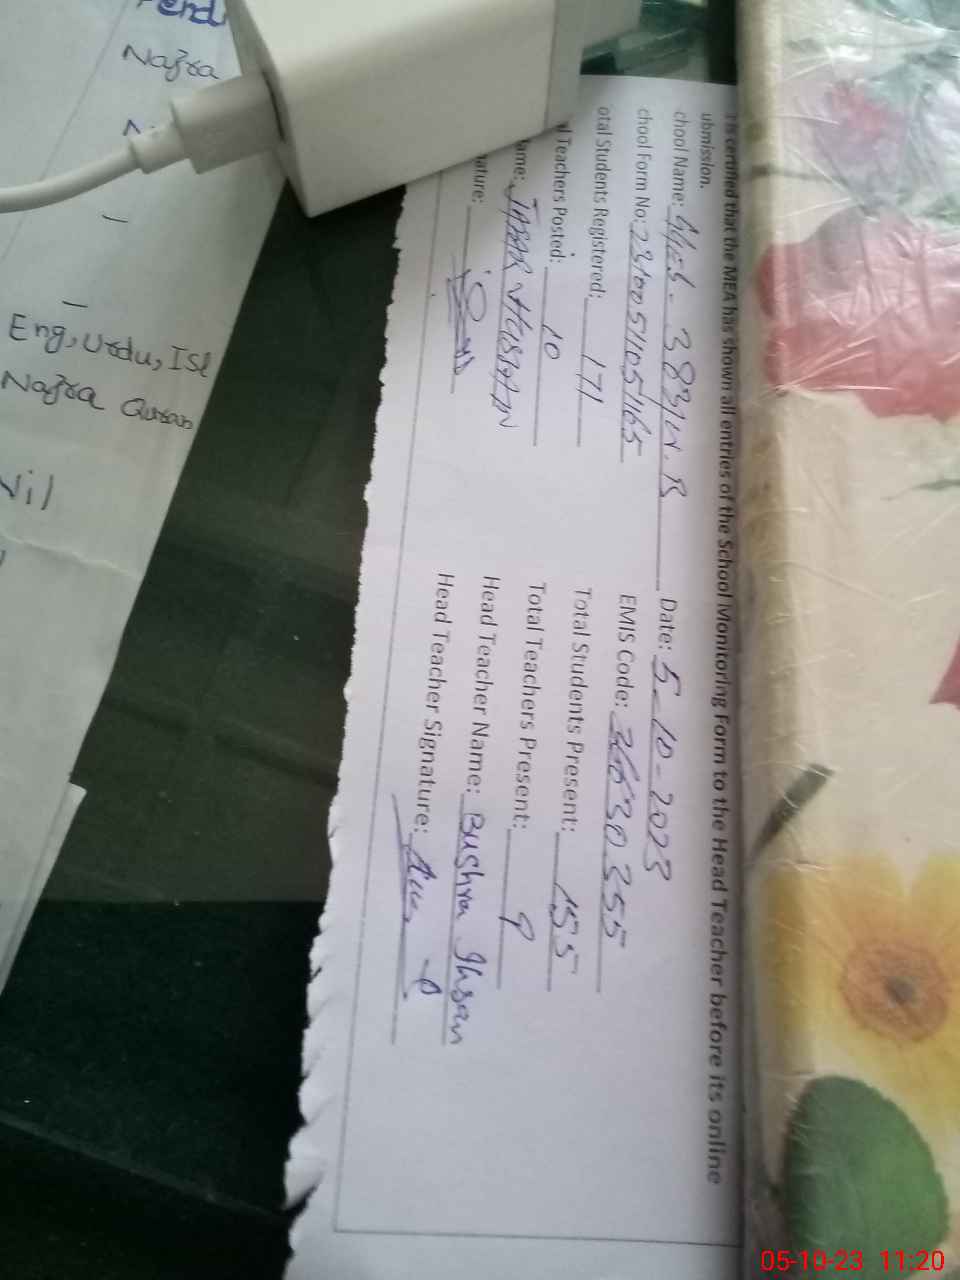 Nazra
Eng, Urdu, Isl
Nazra Quran
Nil
is certified that the MEA has shown all entries of the School Monitoring Form to the Head Teacher before its online
ubmission.
chool Name: 38
Date: 5-10-2023
chool Form No:
EMIS Code: 36630355
otal Students Registered: 171
Total Students Present: 155
l Teachers Posted: 10
Total Teachers Present: 9
ame: JABAR HUSSAIN
Head Teacher Name: Bushra Ihsan
nature:
Head Teacher Signature:
05-10-23 11:20